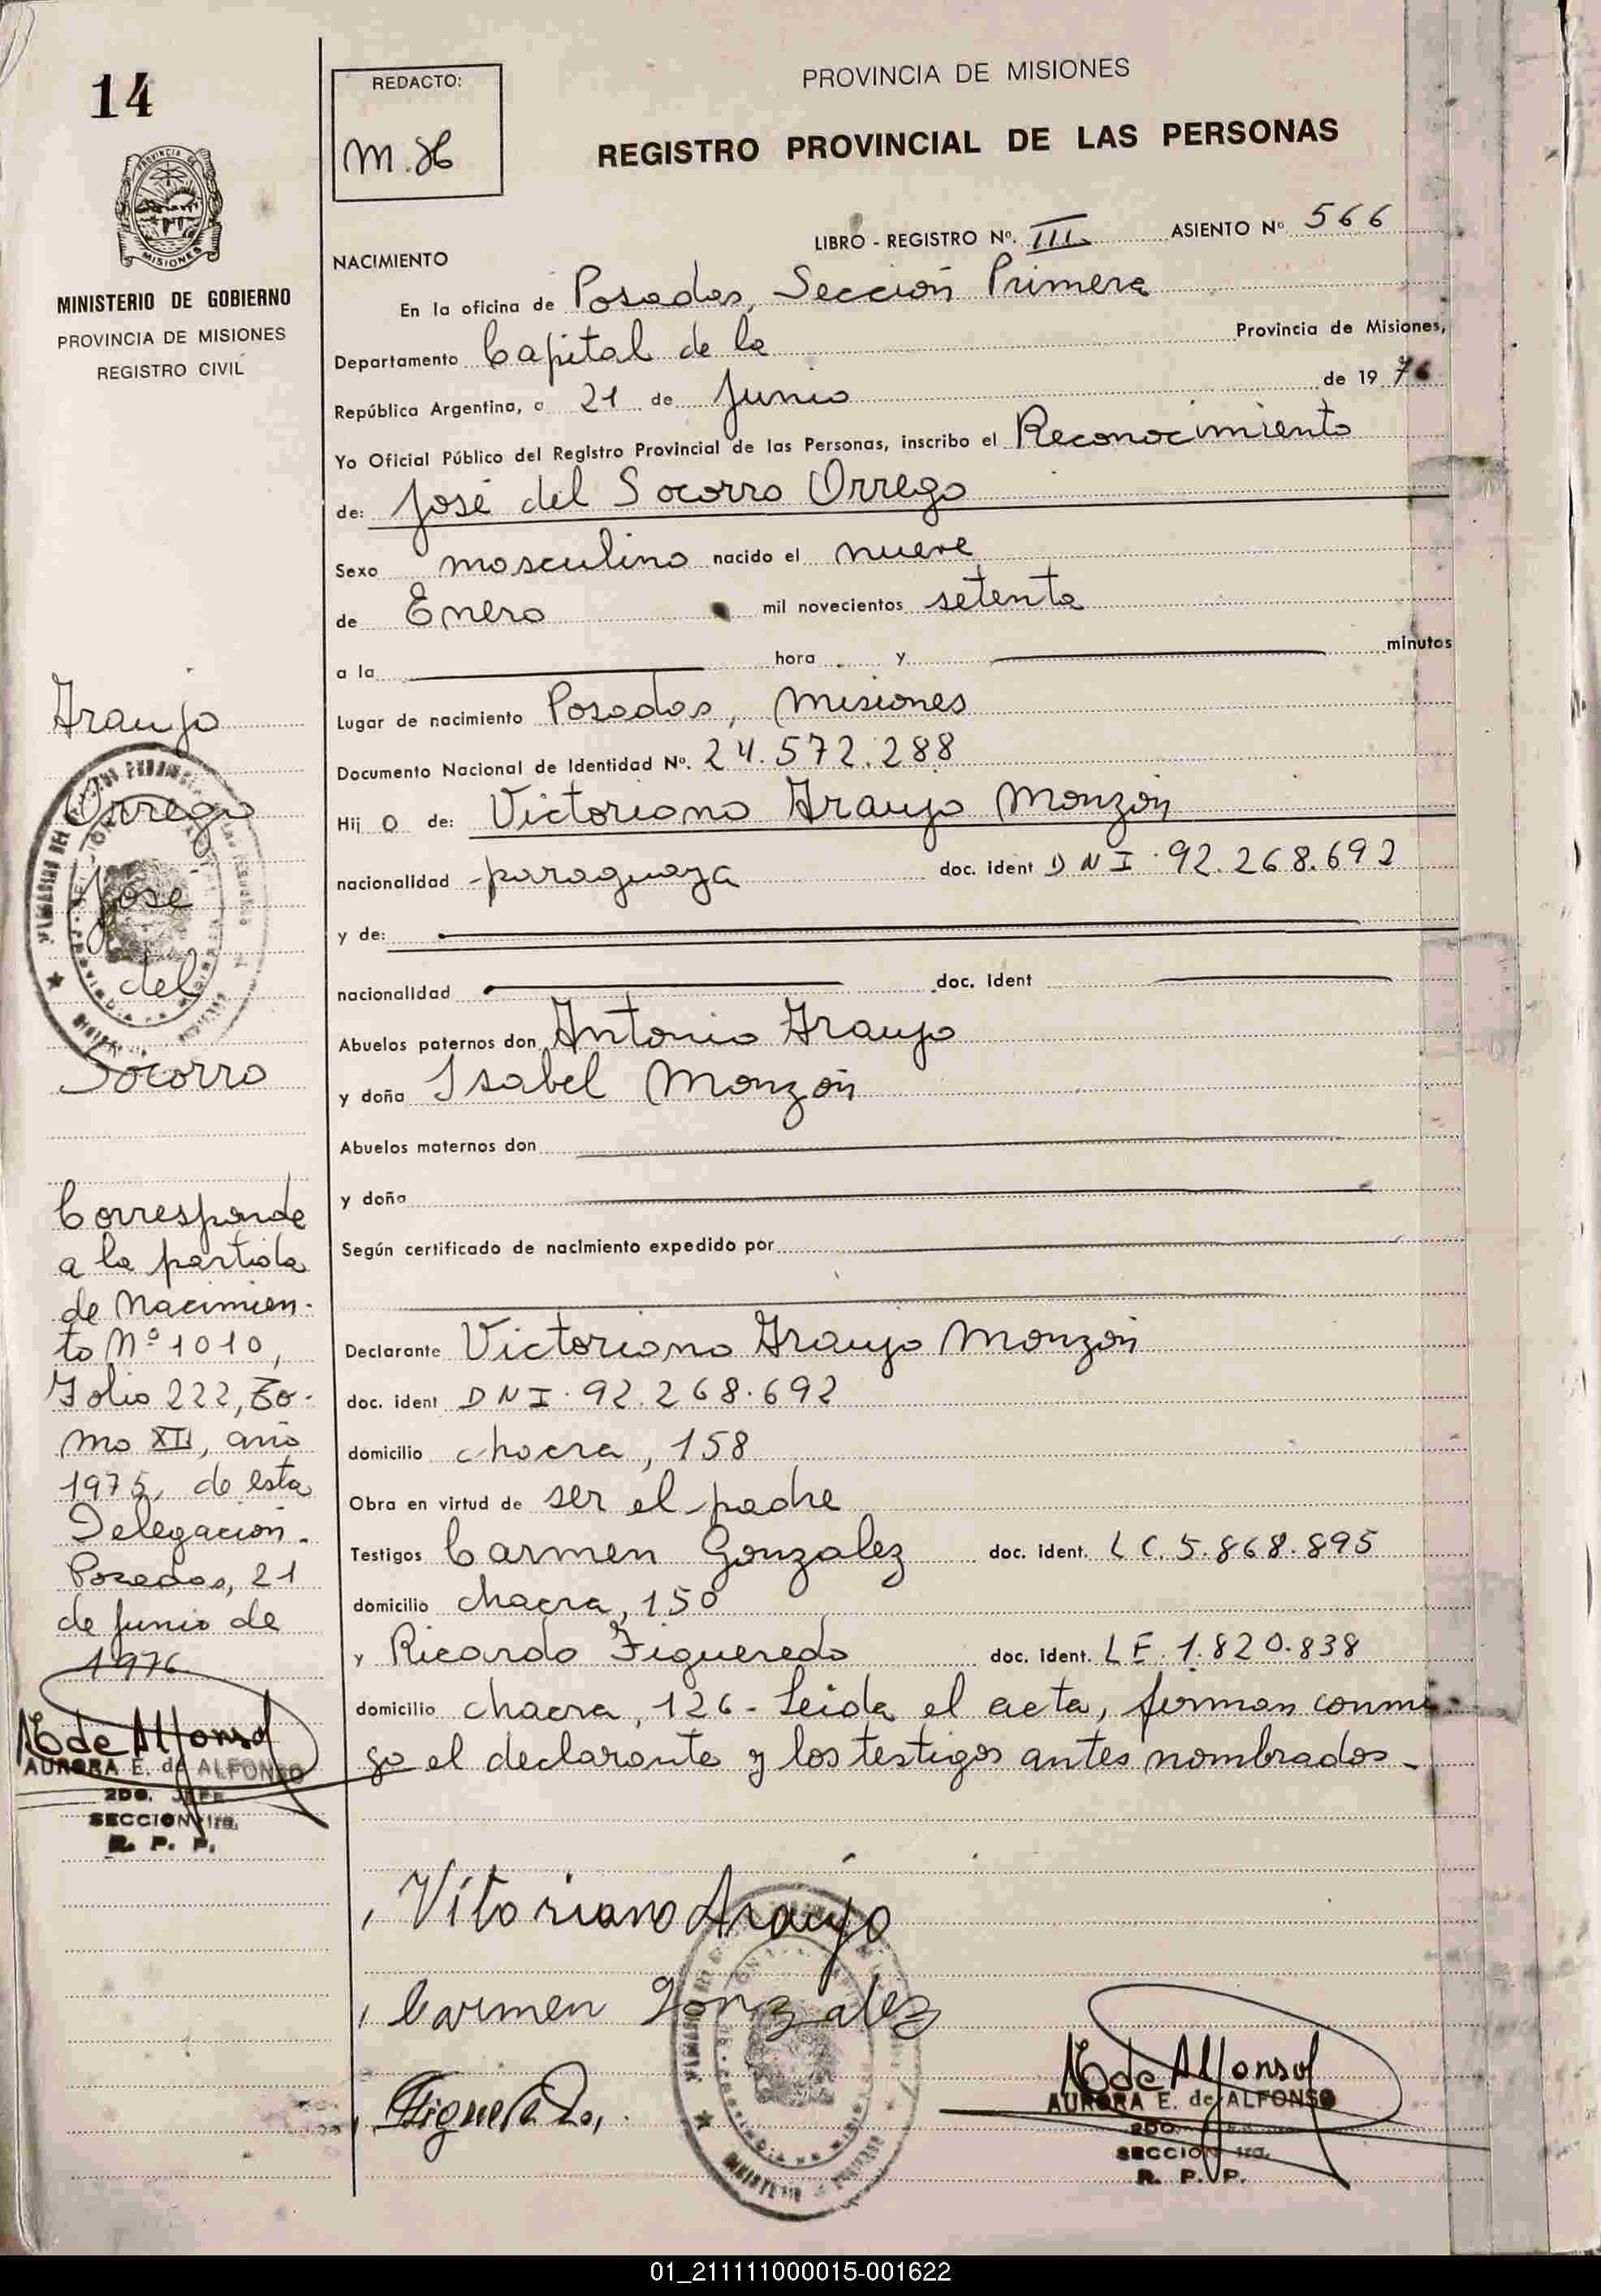 14
MINISTERIO DE GOBIERNO
PROVINCIA DE MISIONES
REGISTRO CIVIL
Araujo
Orrego
José
del
Socorro
Corresponde
a la partida
de Nacimien-
to Nº 1010,
Folio 222, To-
mo XII, año
1975, de esta
Delegación.
Posadas, 21
de Junio de
1976
AURORA E. de ALFONSO
2DO. JEFE
SECCION 1ra.
R. P. P.
REDACTO:
M.H
PROVINCIA DE MISIONES
REGISTRO PROVINCIAL DE LAS PERSONAS
LIBRO - REGISTRO Nº. III ASIENTO Nº 566
NACIMIENTO
En la oficina de Posadas, Sección Primera
Departamento Capital de la Provincia de Misiones,
República Argentina, a 21 de Junio de 1976
Yo Oficial Público del Registro Provincial de las Personas, inscribo el Reconocimiento
de: José del Socorro Orrego
Sexo masculino nacido el nueve
de Enero mil novecientos setenta
a la hora y minutos
Lugar de nacimiento Posadas, Misiones
Documento Nacional de Identidad Nº. 24.572.288
Hij o de: Victoriano Araujo Monzón
nacionalidad paraguaya doc. ident DNI. 92.268.692
y de:
nacionalidad doc. ident
Abuelos paternos don Antonio Araujo
y doña Isabel Monzón
Abuelos maternos don
y doña
Según certificado de nacimiento expedido por
Declarante Victoriano Araujo Monzón
doc. ident DNI. 92.268.692
domicilio chacra, 158
Obra en virtud de ser el padre
Testigos Carmen Gonzalez doc. ident. LC. 5.868.895
domicilio chacra, 150
y Ricardo Figueredo doc. ident. LE. 1.820.838
domicilio chacra, 126 - Leida el acta, firman conmi
go el declarante y los testigos antes nombrados -
Vitoriano Araujo
Carmen Gonzalez
AURORA E. de ALFONSO
2DO.
SECCION 1ra.
R. P. P.
01_211111000015-001622